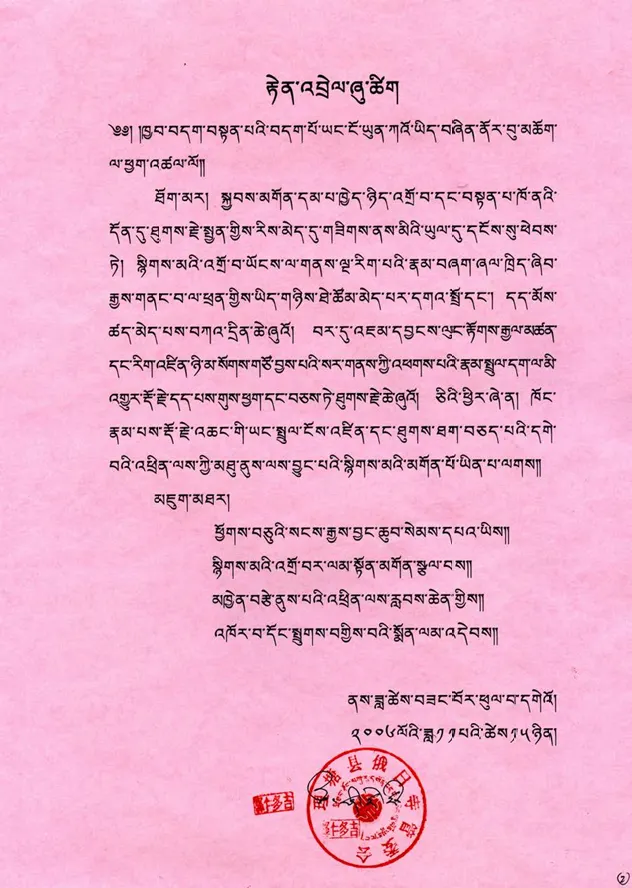 རྟེན་འབྲེལ་ཞུ་ཚིག
༄༅། །ཁྱབ་བདག་བསྟན་པའི་བདག་པོ་ཡང་ངོ་ཡུན་ཀའོ་ཡིད་བཞིན་ནོར་བུ་མཆོག་
ལ་ཕྱག་འཚལ་ལོ།།
ཐོག་མར། སྐྱབས་མགོན་དམ་པ་ཁྱེད་ཉིད་འགྲོ་བ་དང་བསྟན་པ་ཁོ་ནའི་
དོན་དུ་ཐུགས་རྗེ་སྤྱན་གྱིས་རིས་མེད་དུ་གཟིགས་ནས་མིའི་ཡུལ་དུ་དངོས་སུ་ཕེབས་
ཏེ། སྙིགས་མའི་འགྲོ་བ་ཡོངས་ལ་གནས་ལྔ་རིག་པའི་རྣམ་བཞག་ཞལ་ཁྲིད་ཞིབ་
རྒྱས་གནང་བ་ལ་ཕྲན་གྱིས་ཡིད་གཉིས་ཐེ་ཚོམ་མེད་པར་དགའ་སྤྲོ་དང་། དད་མོས་
ཚད་མེད་པས་བཀའ་དྲིན་ཆེ་ཞུའོ། བར་དུ་འཇམ་དབྱངས་ལུང་རྟོགས་རྒྱལ་མཚན་
དང་རིག་འཛིན་ཉི་མ་སོགས་གཙོ་བྱས་པའི་སར་གནས་ཀྱི་འཕགས་པའི་རྣམ་སྤྲུལ་དག་ལ་མི་
འགྱུར་རྡོ་རྗེ་དད་པས་གུས་ཕྱག་དང་བཅས་ཏེ་ཐུགས་རྗེ་ཆེ་ཞུའོ། ཅིའི་ཕྱིར་ཞེ་ན། ཁོང་
རྣམ་པས་རྡོ་རྗེ་འཆང་གི་ཡང་སྤྲུལ་ངོས་འཛིན་དང་ཐུགས་ཐག་བཅད་པའི་དགེ་
བའི་འཕྲིན་ལས་ཀྱི་མཐུ་ནུས་ལས་བྱུང་པའི་སྙིགས་མའི་མགོན་པོ་ཡིན་པ་ལགས།།
མཇུག་མཐར།
ཕྱོགས་བཅུའི་སངས་རྒྱས་བྱང་ཆུབ་སེམས་དཔའ་ཡིས།།
སྙིགས་མའི་འགྲོ་བར་ལམ་སྟོན་མགོན་སྩལ་བས།།
མཁྱེན་བརྩེ་ནུས་པའི་འཕྲིན་ལས་རླབས་ཆེན་གྱིས།།
འཁོར་བ་དོང་སྤྲུགས་བགྱིས་བའི་སྨོན་ལམ་འདེབས།།
ནས་ཟླ་ཚེས་བཟང་བོར་ཕུལ་བ་དགེའོ།
༢༠༠༦ལོའི་ཟླ་༡༡པའི་ཚེས་༡༥ཉིན།
塘县俄日寺管委会
②